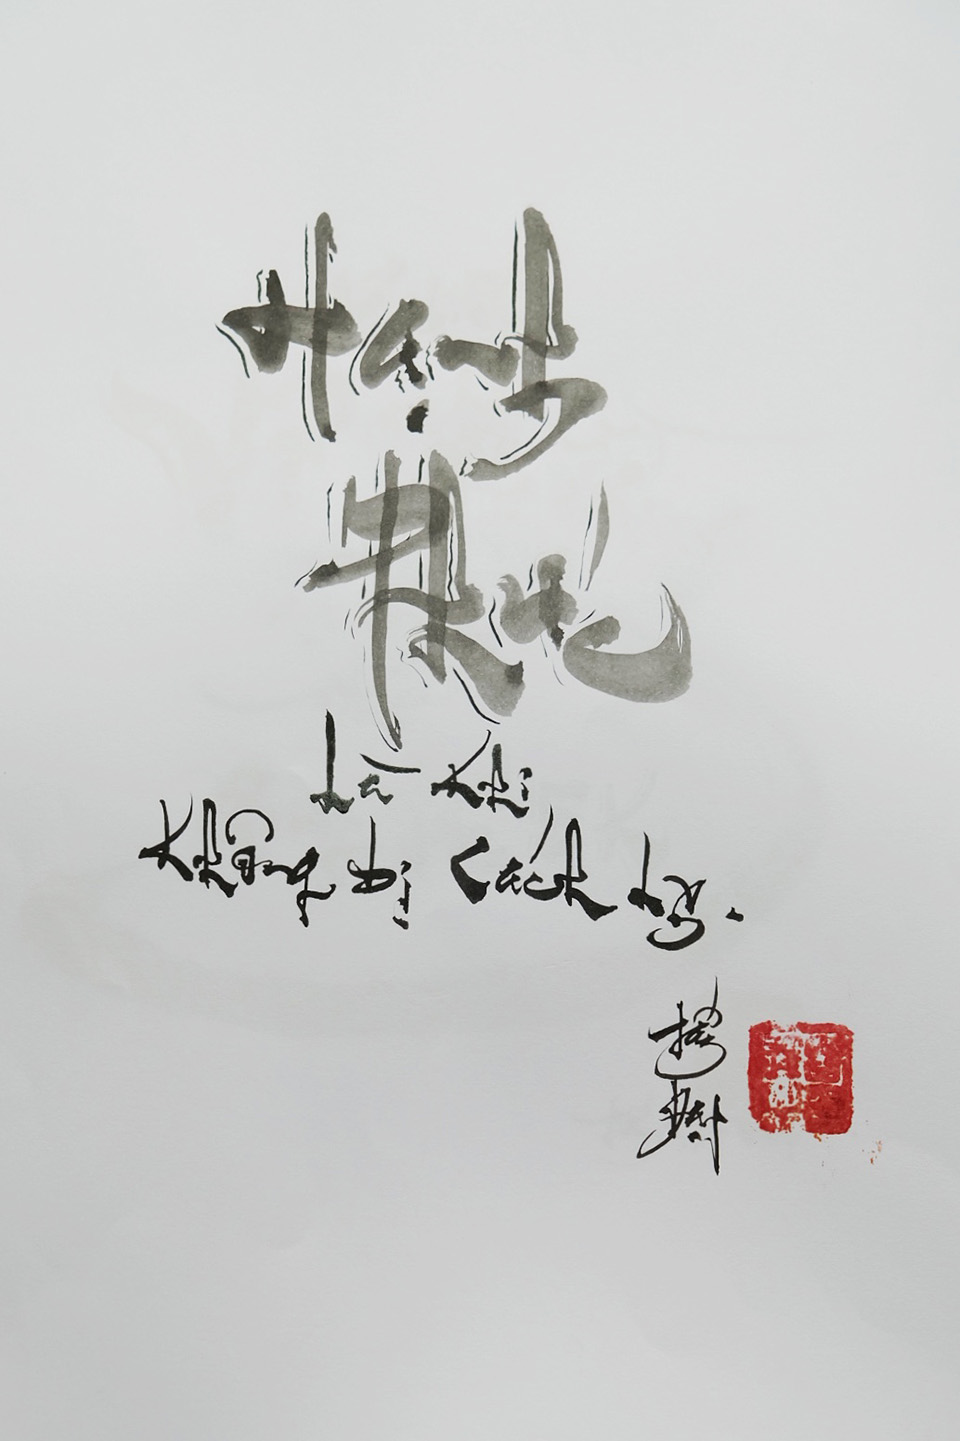 Hạnh
Phúc
Là Khi
Không bị cách ly.